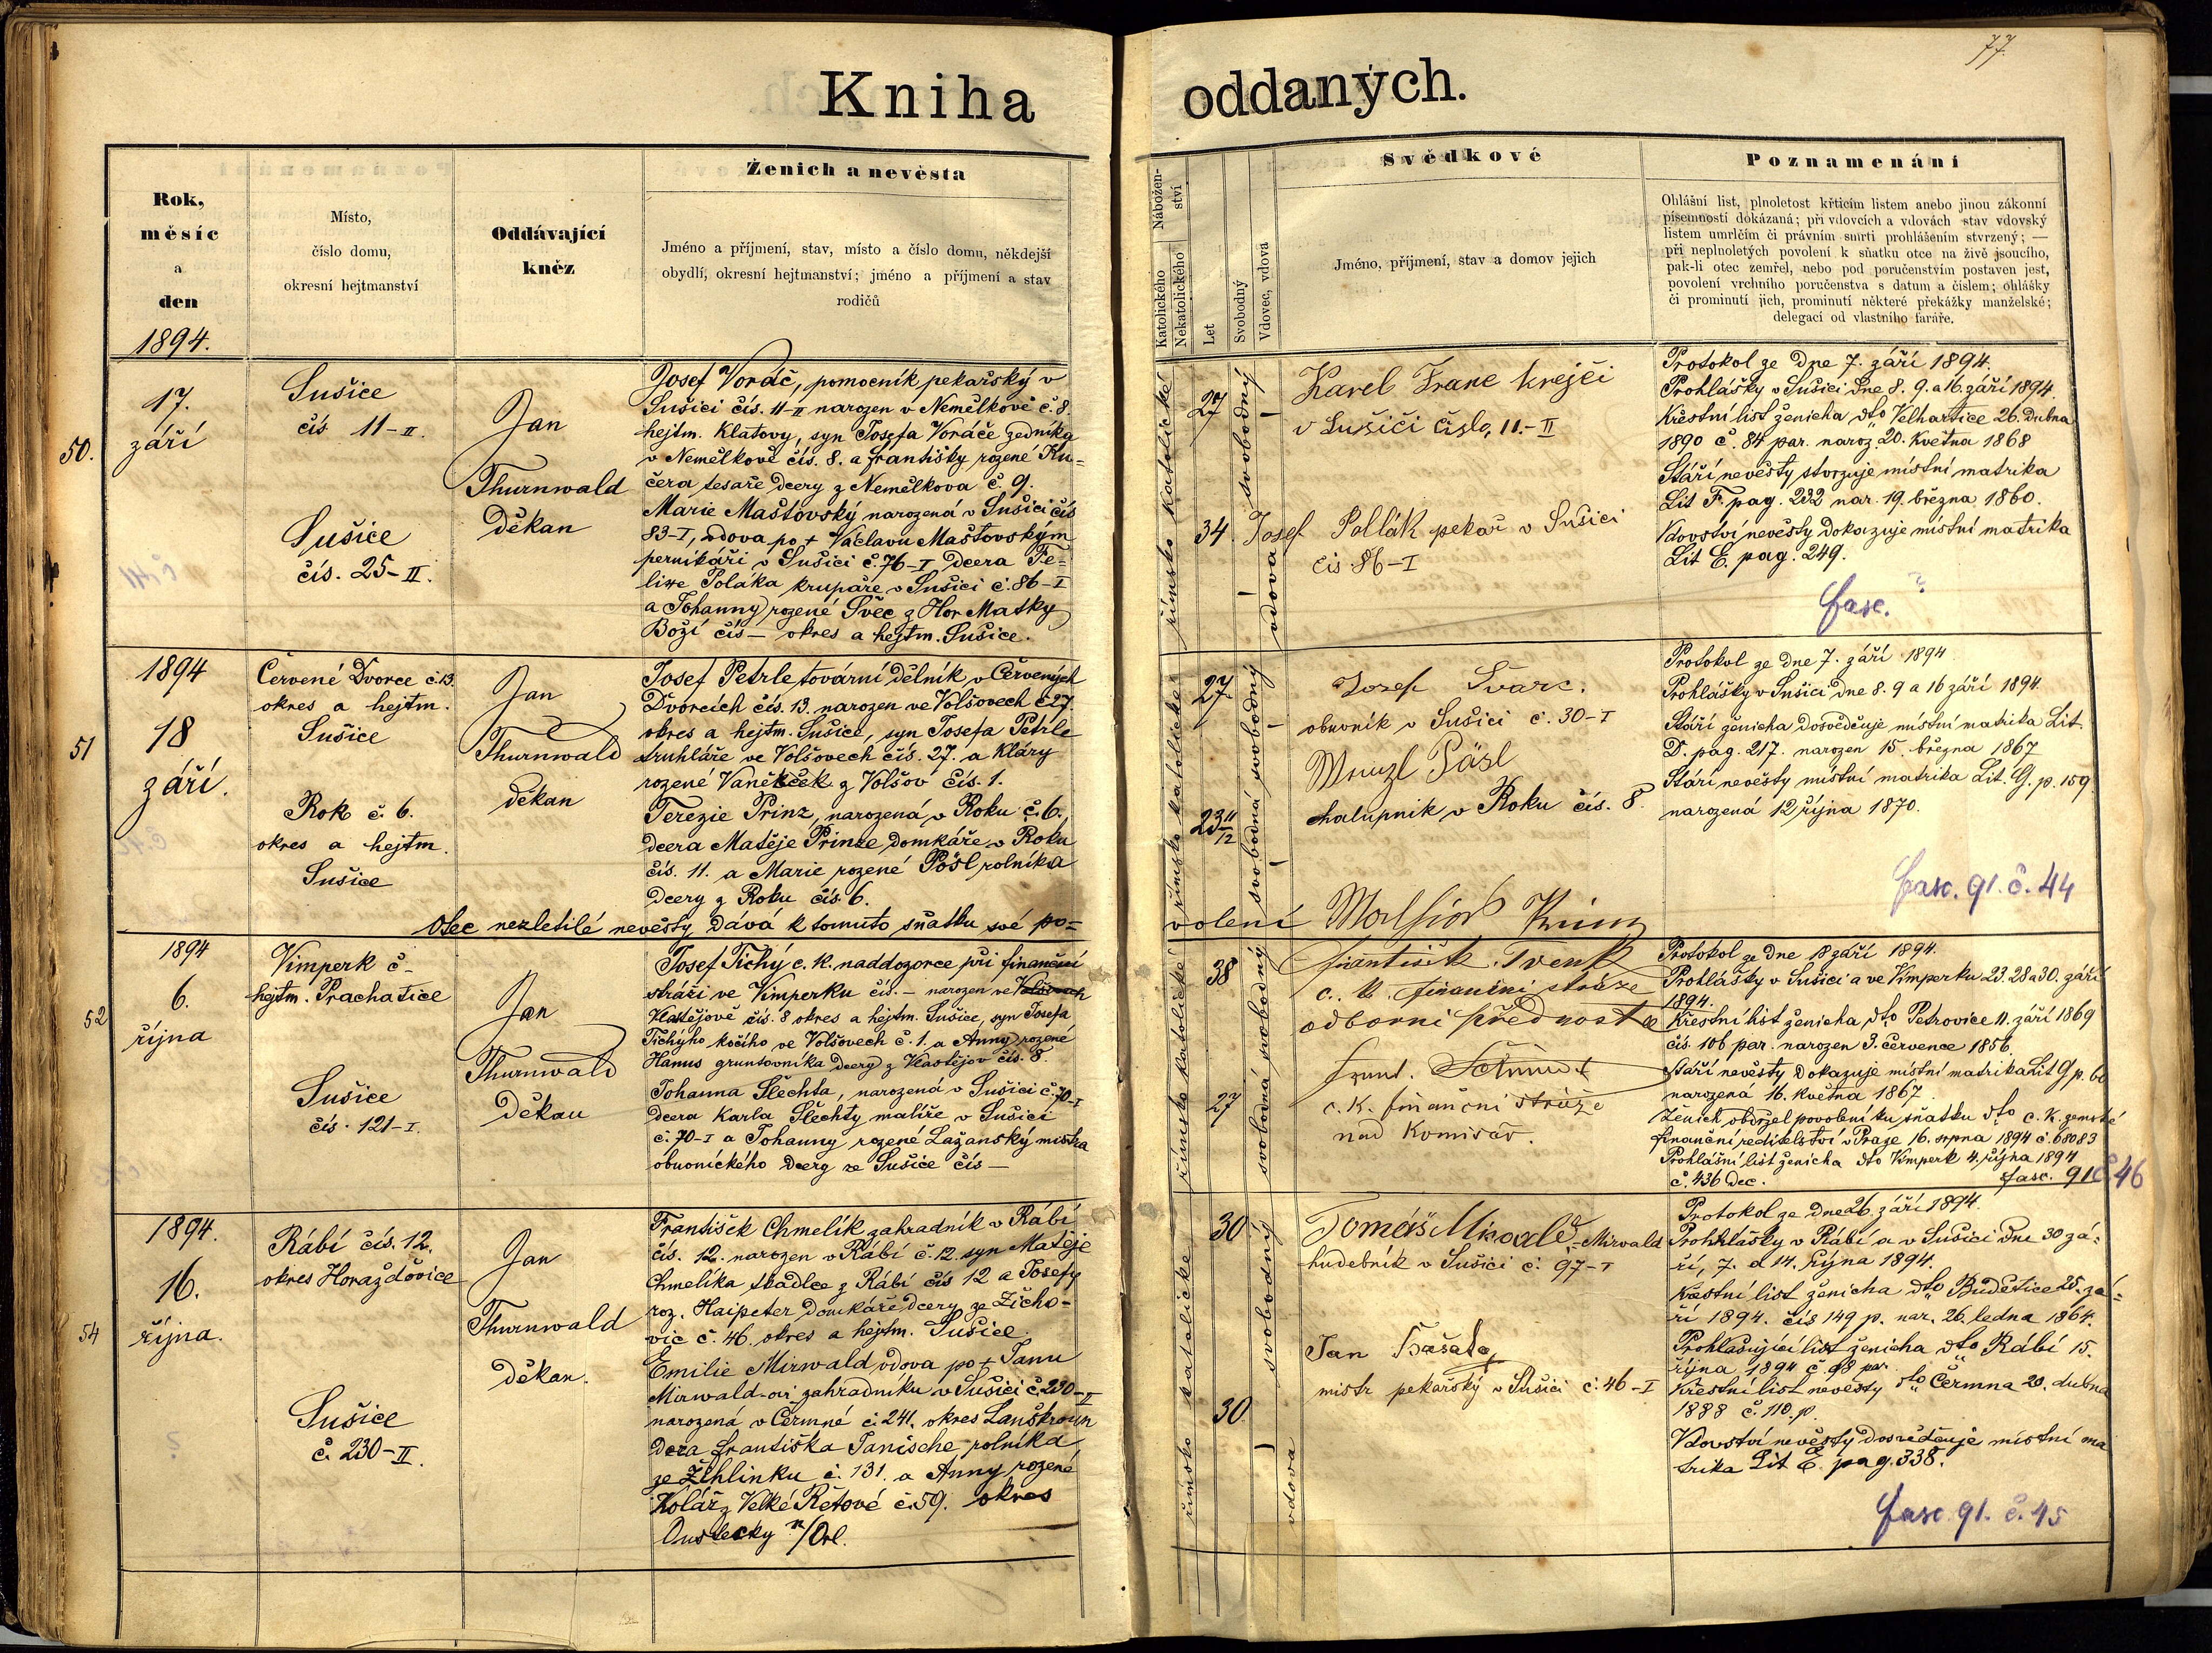 77.
Kniha oddaných.
Rok,
měsíc
a
den
1894.
Místo,
číslo domu,
okresní hejtmanství
Oddávající
kněz
Ženich a nevěsta
Jméno a příjmení, stav, místo a číslo domu, někdejší
obydlí, okresní hejtmanství; jméno a příjmení a stav
rodičů
Nábožen-
ství
Katolického
Nekatolického
Let
Svobodný
Vdovec, vdova
Svědkové
Jméno, příjmení, stav a domov jejich
Poznamenání
Ohlášní list, plnoletost křticím listem anebo jinou zákonní
písemností dokázaná; při vdovcích a vdovách stav vdovský
listem umrlčím či právním smrti prohlášením stvrzený; —
při neplnoletých povolení k sňatku otce na živě jsoucího,
pak-li otec zemřel, nebo pod poručenstvím postaven jest,
povolení vrchního poručenstva s datum a číslem; ohlášky
či prominutí jich, prominutí některé překážky manželské;
delegací od vlastního faráře.
50.
17.
září
Sušice
čís 11-II.
Sušice
čís. 25-II.
Jan
Thurnwald
děkan
Josef Voráč, pomocník pekařský v
Sušici čís. 11-II narozen v Nemělkově č. 8.
hejtm. Klatovy, syn Josefa Voráče zedníka
v Nemělkově čís. 8. a Františky rozené Ku=
čera tesaře dcery z Nemělkova č. 9.
Marie Maštovský narozená v Sušici čís
83-I, vdova po + Václavu Maštovským
perníkáři v Sušici č. 76-I dcera Fe=
lixe Poláka krupaře v Sušici č. 86-I
a Johanny rozené Švec z Hor Matky
Boží čís — okres a hejtm. Sušice.
římsko katolické
27
34.
svobodný
vdova
Karel Franc krejčí
v Sušiči číslo, 11.-II
Josef Pollák pekař v Sušici
čís 86-I
Protokol ze dne 7. září 1894.
Prohlášky v Sušici dne 8. 9. a 16. září 1894.
Křestní list ženicha dto Velhartice 26. dubna
1890 č. 84 par. naroz. 20. Května 1868
Stáří nevěsty stvrzuje místní matrika
Lit F. pag. 232 nar. 19. března 1860.
Vdovství nevěsty dokazuje místní matrika
Lit E. pag. 249.
fasc. ?
51
1894
18
září.
Červené Dvorce č. 13.
okres a hejtm.
Sušice
Rok č. 6.
okres a hejtm.
Sušice
Jan
Thurnwald
děkan
Josef Petrle tovární dělník v Červených
Dvorcích čís. 13. narozen ve Volšovech č 27.
okres a hejtm. Sušice, syn Josefa Petrle
truhláře ve Volšovech čís. 27. a Kláry
rozené Vaněček z Volšov čís. 1.
Terezie Prinz, narozená v Roku č. 6.,
dcera Matěje Prinze, domkáře v Roku
čís. 11. a Marie rozené Pösl rolníka
dcery z Roku čís 6.
Otec nezletilé nevěsty dává k tomuto sňatku své po=
volení
římsko katolické
27
23 11/12
svobodný
svobodná
Josef Švarc.
obuvník v Sušici č. 30-I
Wenzl Päsl
chalupník v Roku čís. 8.
Protokol ze dne 7. září 1894
Prohlášky v Sušici dne 8. 9 a 16 září 1894.
Stáří ženicha dosvědčuje místní matrika Lit.
D. pag. 217. narozen 15. března 1867.
Stáří nevěsty místní matrika Lit. G. p. 159
narozená 12 října 1870.
fasc. 91. č. 44
52
1894
6.
října
Vimperk č-
hejtm. Prachatice
Sušice
čís. 121-I.
Jan
Thurnwald
děkan
Josef Tichý c. k. naddozorce při finanční
stráži ve Vimperku čís. — narozen ve Volšovech
Vlastějově čís. 8 okres a hejtm. Sušice, syn Josefa
Tichýho kočího ve Volšovech č. 1. a Anny rozené
Hanus gruntovníka dcery z Vlastějov čís. 8.
Johanna Šlechta, narozená v Sušici č. 70-I
dcera Karla Šlechty malíře v Sušici
č. 70-I a Johanny rozené Lažanský mistra
obuvnického dcery ze Sušice čís —
římsko katolické
38
27
svobodný
svobodná
František Tvenk
c. k. finanční stráže
odborní přednosta
c. k. finanční stráže
nad Komisař.
Protokol ze dne 18 září 1894.
Prohlášky v Sušici a ve Vimperku 23. 28 a 30. září
1894.
Křestní list ženicha dto Petrovice 11. září 1869
čís. 106 par. narozen 3. července 1856.
Stáří nevěsty dokazuje místní matrika Lit G p. 60
narozená 16. května 1867.
Ženich obdržel povolení ku sňatku dto c. k. zemské
finanční ředitelství v Praze 16. srpna 1894 č. 68083
Prohlášní list ženicha dto Vimperk 4. října 1894
č. 436 dec.
fasc. 91 č. 46
54
1894.
16.
října.
Rábí čís. 12.
okres Horažďovice
Sušice
č. 230-II.
Jan
Thurnwald
děkan.
František Chmelík zahradník v Rábí
čís. 12. narozen v Rábí č. 12. syn Matěje
Chmelíka tkadlce z Rábí čís 12 a Josefy
roz. Haipeter domkáře dcery ze Žicho=
vic č. 46. okres a hejtm. Sušice
Emilie Mirwald vdova po + Janu
Mirwald-ovi zahradníku v Sušici č. 230-II
narozená v Čermné č. 241. okres Lanškroun
dcera Františka Janische, rolníka
ze Žihlinku č. 131. a Anny rozené
Kolář z Velké Řetové č. 59. okres
Oustecky n/Orl.
římsko katolické
30
30
svobodný
vdova
Tomáš Mirwald
hudebník v Sušici č. 97-I
Jan Bašata
mistr pekařský v Sušici č. 46-I
Protokol ze dne 26. září 1894.
Prohlášky v Rábí a v Sušici dne 30 zá=
ří, 7. a 14. října 1894.
Křestní list ženicha dto Budětice 25. zá=
ří 1894. čís 149 p. nar. 26. ledna 1864.
Prohlašující list ženicha dto Rábí 15.
října 1894 č. 98 par.
Křestní list nevěsty dto Čermna 20. dubna
1888 č. 110. p.
Vdovství nevěsty dosvědčuje místní ma
trika Lit E. pag. 338.
fasc. 91. č. 45